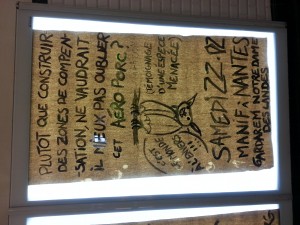 PLUTOT QUE CONSTRUIR
DES ZONES DE COMPEN-
-SATION NE VAUDRAIT
IL MIEUX PAS OUBLIER
CET AERO PORC?
(TÉMOIGNAGE
D'UNE ESPECE
MENACÉE)
C'EST
SAMEDI 22-02
MANIF à NANTES
GARDAREM NOTRE DAME
DES LANDES